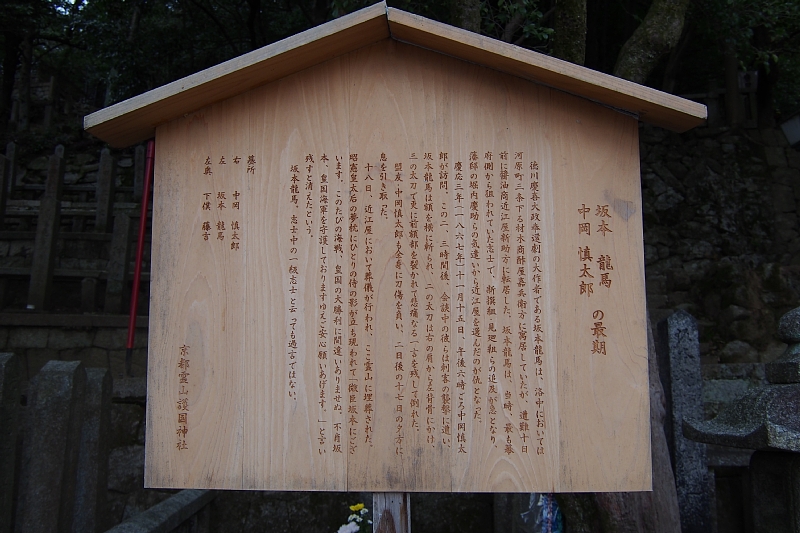 坂本 龍馬
中岡 慎太郎
の最期
徳川慶喜大政奉還劇の大作者である坂本龍馬は、洛中においては
河原町三条下る材木商酢屋嘉兵衛方に寓居していたが、遭難十日
前に醤油商近江屋新助方に転居した。坂本龍馬は、当時、最も幕
府側から狙われていた志士で、新撰組・見廻組らの追及が急となり、
藩邸の堀内慶助らの気遣いから近江屋を選んだのが仇となった。
慶応三年(一八六七年)十一月十五日、午後六時ごろ中岡慎太
郎が訪問。この二、三時間後、会談中の彼らは刺客の襲撃に遭い、
坂本龍馬は額を横に斬られ、二の太刀は右の肩から左背骨にかけ、
三の太刀で更に前額部を裂かれて悲痛なる一言を残して倒れた。
盟友・中岡慎太郎も全身に刀傷を負い、二日後の十七日の夕方に
息を引き取った。
十八日、近江屋において葬儀が行われ、ここ霊山に埋葬された。
昭憲皇太后の夢枕にひとりの侍の影が立ち現われて「微臣坂本にござ
います。このたびの海戦、皇国の大勝利に間違いありませぬ。不肖坂
本、皇国海軍を守護しておりますゆえご安心願いあげます。」と言い
残すと消えたという。
坂本龍馬、志士中の一級志士と云っても過言ではない。
墓所
右 中岡 慎太郎
左 坂本 龍馬
左奥 下僕 藤吉
京都霊山護国神社